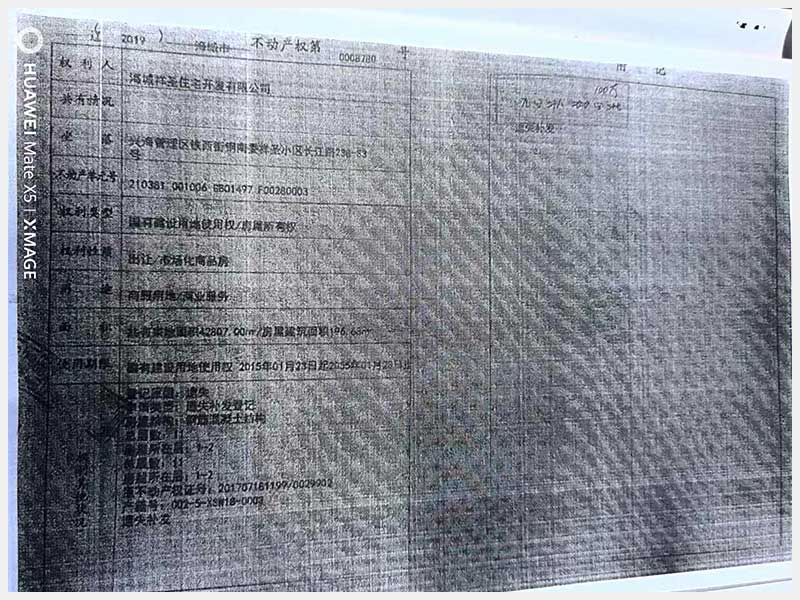 ( 2019 ) 海城市 不动产权第 0008780 号
附 记
权利人 海城祥圣住宅开发有限公司
共有情况
坐落 兴海管理区铁西街铜南委祥圣小区长江路236-S3号
不动产单元号 210381 001006 GB01497 F00280003
权利类型 国有建设用地使用权/房屋所有权
权利性质 出让/市场化商品房
用途 商服用地/商业服务
面积 共有宗地面积42807.00㎡/房屋建筑面积196.68㎡
使用期限 国有建设用地使用权 2015年01月23日起2055年01月22日止
登记原因：遗失
遗失补发登记
钢筋混凝土结构
总层数：11
所在层：1-2
总层数：11
房屋所在层：1-2
原不动产权证号：201707181199/0029902
产籍号：002-5-XSW18-0003
遗失补发
100万
遗失补发
HUAWEI Mate X5 | XMAGE